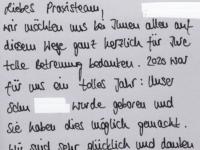 Liebes Praxisteam,
wir möchten uns bei Ihnen allen auf
diesem Wege ganz herzlich für Ihre
tolle Betreuung bedanken. 2020 war
für uns ein tolles Jahr: Unser
Sohn wurde geboren und
Sie haben dies möglich gemacht.
Wir sind sehr glücklich und danken